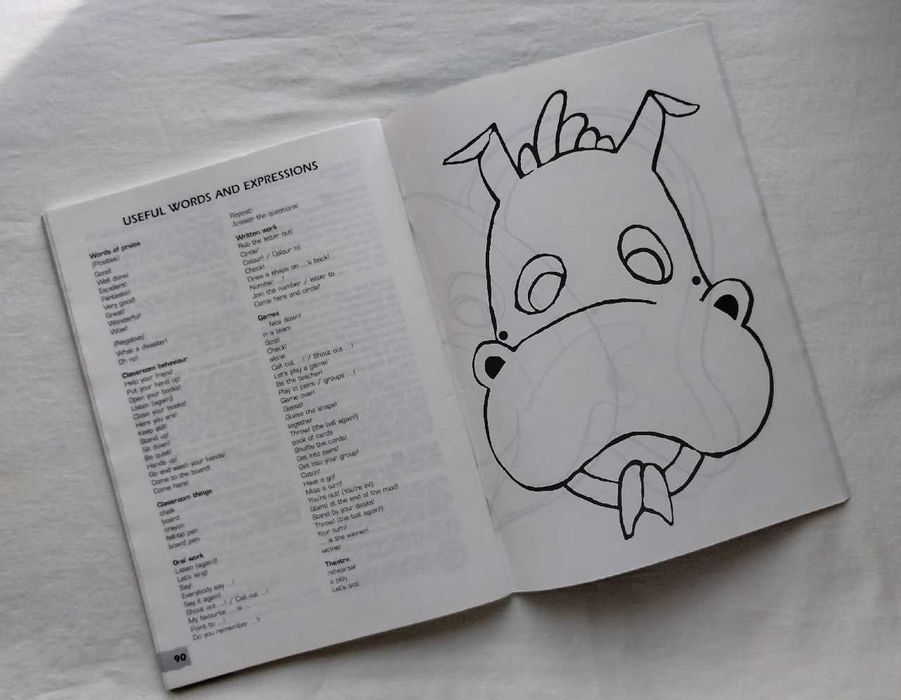 USEFUL WORDS AND EXPRESSIONS
Words of praise
(Positive)
Good!
Well done!
Excellent!
Fantastic!
Very good!
Great!
Wonderful!
Wow!
(Negative)
What a disaster!
Oh no!
Classroom behaviour
Help your friend
Put your hand up!
Open your books!
Listen (again)!
Close your books!
Here you are!
Keep still!
Stand up!
Sit down!
Be quiet!
Hands up!
Go and wash your hands!
Come to the board!
Come here!
Classroom things
chalk
board
crayon
felt-tip pen
board pen
Oral work
Listen (again)!
Let's sing!
Say!
Everybody say ...!
Say it again!
Shout out ...! / Call out ...!
My favourite ... is ...
Point to ...!
Do you remember ...?
Repeat!
Answer the questions!
Written work
Rub the letter out!
Circle!
Colour! / Colour in!
Check!
Draw a shape on ...'s back!
Number ...!
Join the number / letter to ...
Come here and circle!
Games
... face down!
in a team
Stop!
Check!
alone
Call out ...! / Shout out ...!
Let's play a game!
Be the teacher!
Play in pairs / groups ...!
Game over!
Guess!
Guess the shape!
together
Throw! (the ball again!)
pack of cards
Shuffle the cards!
Get into pairs!
Get into your group!
Catch!
Have a go!
Miss a turn!
You're out! (You're in!)
Stand at the end of the road!
Stand by your desks!
Throw! (the ball again!)
Your turn!
... is the winner!
winner
Theatre
rehearsal
a play
Let's act!
90